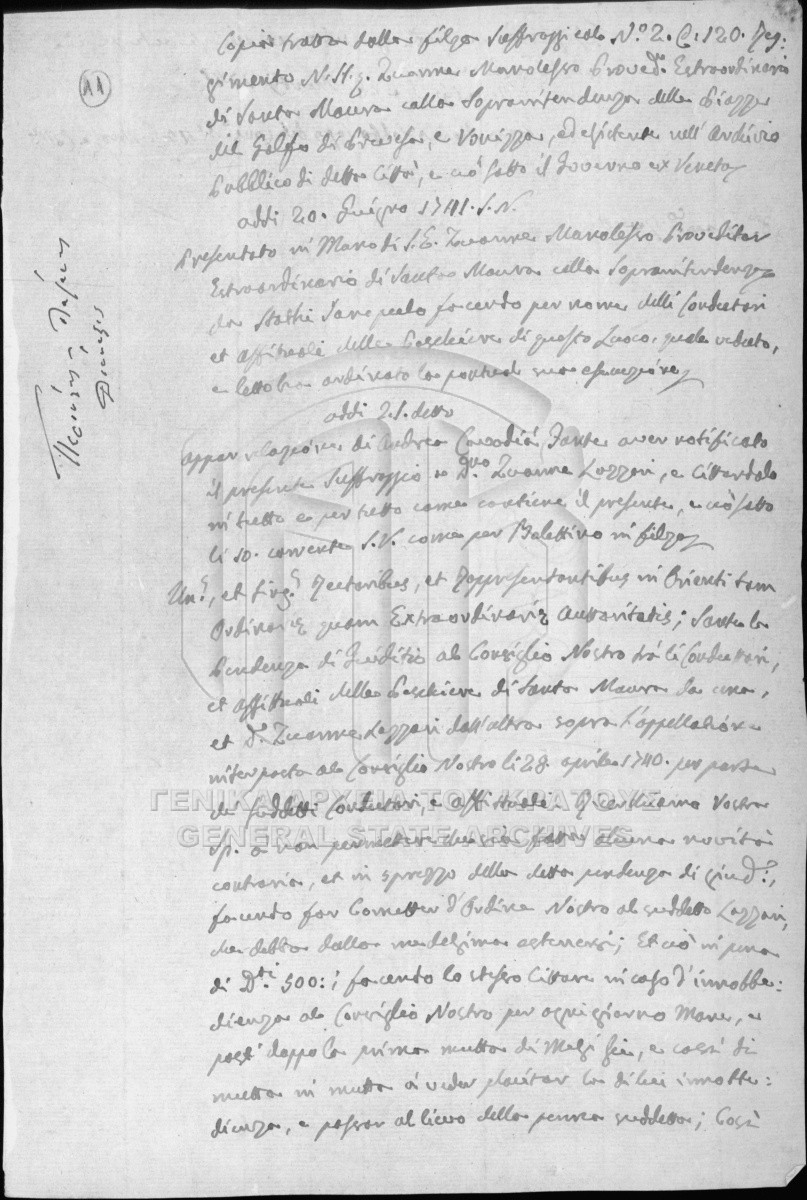 11
Copia tratta dalla filza Suffraggi col N.º 2. C. 120. Reg-
gimento N. H. q. Zuanne Manolesso Proved.r Extraordinario
di Santa Maura colla Sopraintendenza delle Piazze
del Golfo di Prevesa, e Vonizza, ed esistente nell'Archivio
Pubblico di detta Città, e ciò sotto il Governo ex Veneto
addi 20. Giugno 1741. S. N.
Presentato in Mano di S. E. Zuanne Manolesso Proveditor
Estraordinario di Santa Maura colla Sopraintendenza
da Stathi facendo per nome delli Conduttori
et affittuali delle Peschiere di questo Luoco, quale veduto,
e letto ha ordinato la pontual sua esecuzione
addi 21. detto
appar relazione di Andrea Fante aver notificato
il presente Suffraggio a D.no Zuanne Lazzari, e cittandolo
in tutto e per tutto come contiene il presente, e ciò sotto
li 10. corrente S. N. come per Bolettino in filza
Un.s, et sing.s Rectoribus, et Rappresentantibus in Orienti tam
Ordinariæ quam Extraordinariæ Auttoritatis; Stante la
Pendenza di Giuditio al Consiglio Nostro trà li Conduttori,
et affittuali delle Peschiere di Santa Maura da una,
et D. Zuanne Lazzari dall'altra sopra l'appellatione
interposta al Consiglio Nostro li 28. aprile 1740. per parte
de suddetti Conduttori, e affittuali
sp. a non permetter che sia fatta alcuna novità
contraria, et in sprezzo della detta pendenza di giud.º,
facendo far Cometter d'Ordine Nostro al suddetto Lazzari,
che debba dalla medesima astenersi; Et ciò in pena
di D.ti 500:; facendo lo stesso Cittare in caso d'innobbe:
dienza al Consiglio Nostro per ogni giorno Mane, e
post doppo la prima mutta di Mesi sei, e così di
mutta in mutta à veder placitar la di lui innobbe:
dienza, e passar al lievo della penna suddetta; Così
ΓΕΝΙΚΑ ΑΡΧΕΙΑ ΤΟΥ ΚΡΑΤΟΥΣ
GENERAL STATE ARCHIVES